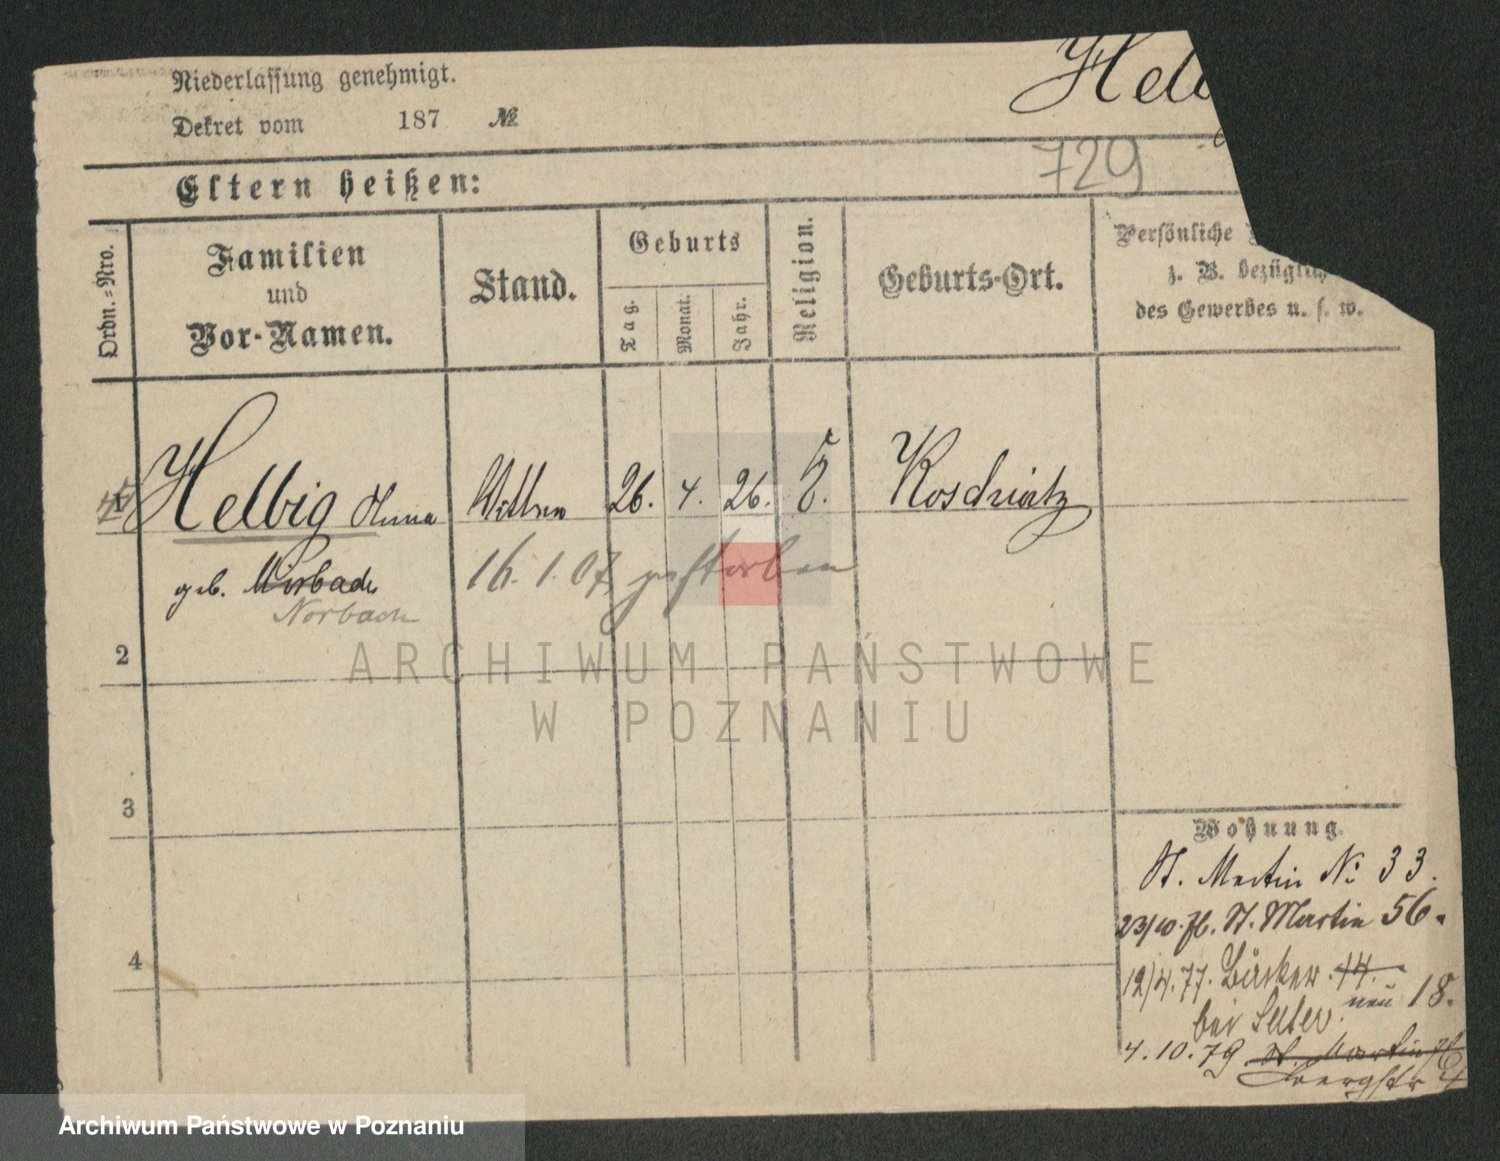 Niederlassung genehmigt.
Helb
Dekret vom 187 №
729
Eltern heißen:
Ordn.-Nro.
Familien
und
Vor-Namen.
Stand.
Geburts
Tag.
Monat.
Jahr.
Religion.
Geburts-Ort.
Persönliche
z. B. bezüglich
des Gewerbes u. s. w.
Helbig Anna
26. 4. 26.
geb.
Norbach
16.1.07 gestorben
2
ARCHIWUM PAŃSTWOWE
W POZNANIU
3
4
Wohnung.
St. Martin No 33.
St. Martin 56.
12/4.77. Bäcker 14.
neu 18.
bei
4.10.79 St. Martin
Archiwum Państwowe w Poznaniu